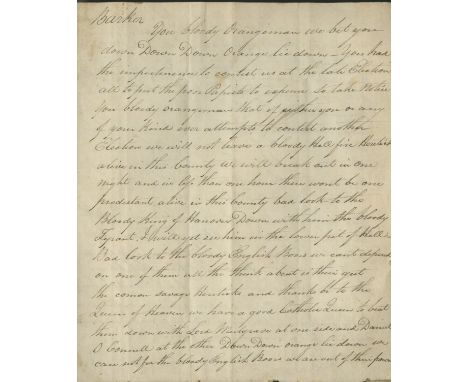 Barker
You bloody Orangeman we bet you
down Down Down Orange lie down – You had
the impertinency to contest us at the late Election
all to put the poor Papists to expense So take Notice
You bloody orangeman that if either you or any
of your kind ever attempts to contest another
Election we will not leave a bloody hell fire Heretick
alive in this County we will break out in one
night and in less than one hour there wont be one
prodestant alive in this County bad look to the
Bloody King of Hanover Down with him the bloody
Tyrant I will yet see him in the lower pit of Hell
Bad look to the bloody English Boors we cant depend
on one of them all the think about is their gut
the comon Savage Hereticks and thanks be to the
Queen of Heaven we have a good Catholic Queen to beat
them down with Lord Mulgrave at one side and Daniel
O Connell at the other Down Down orange lie down we
care not for the bloody English Boors we are out of their power